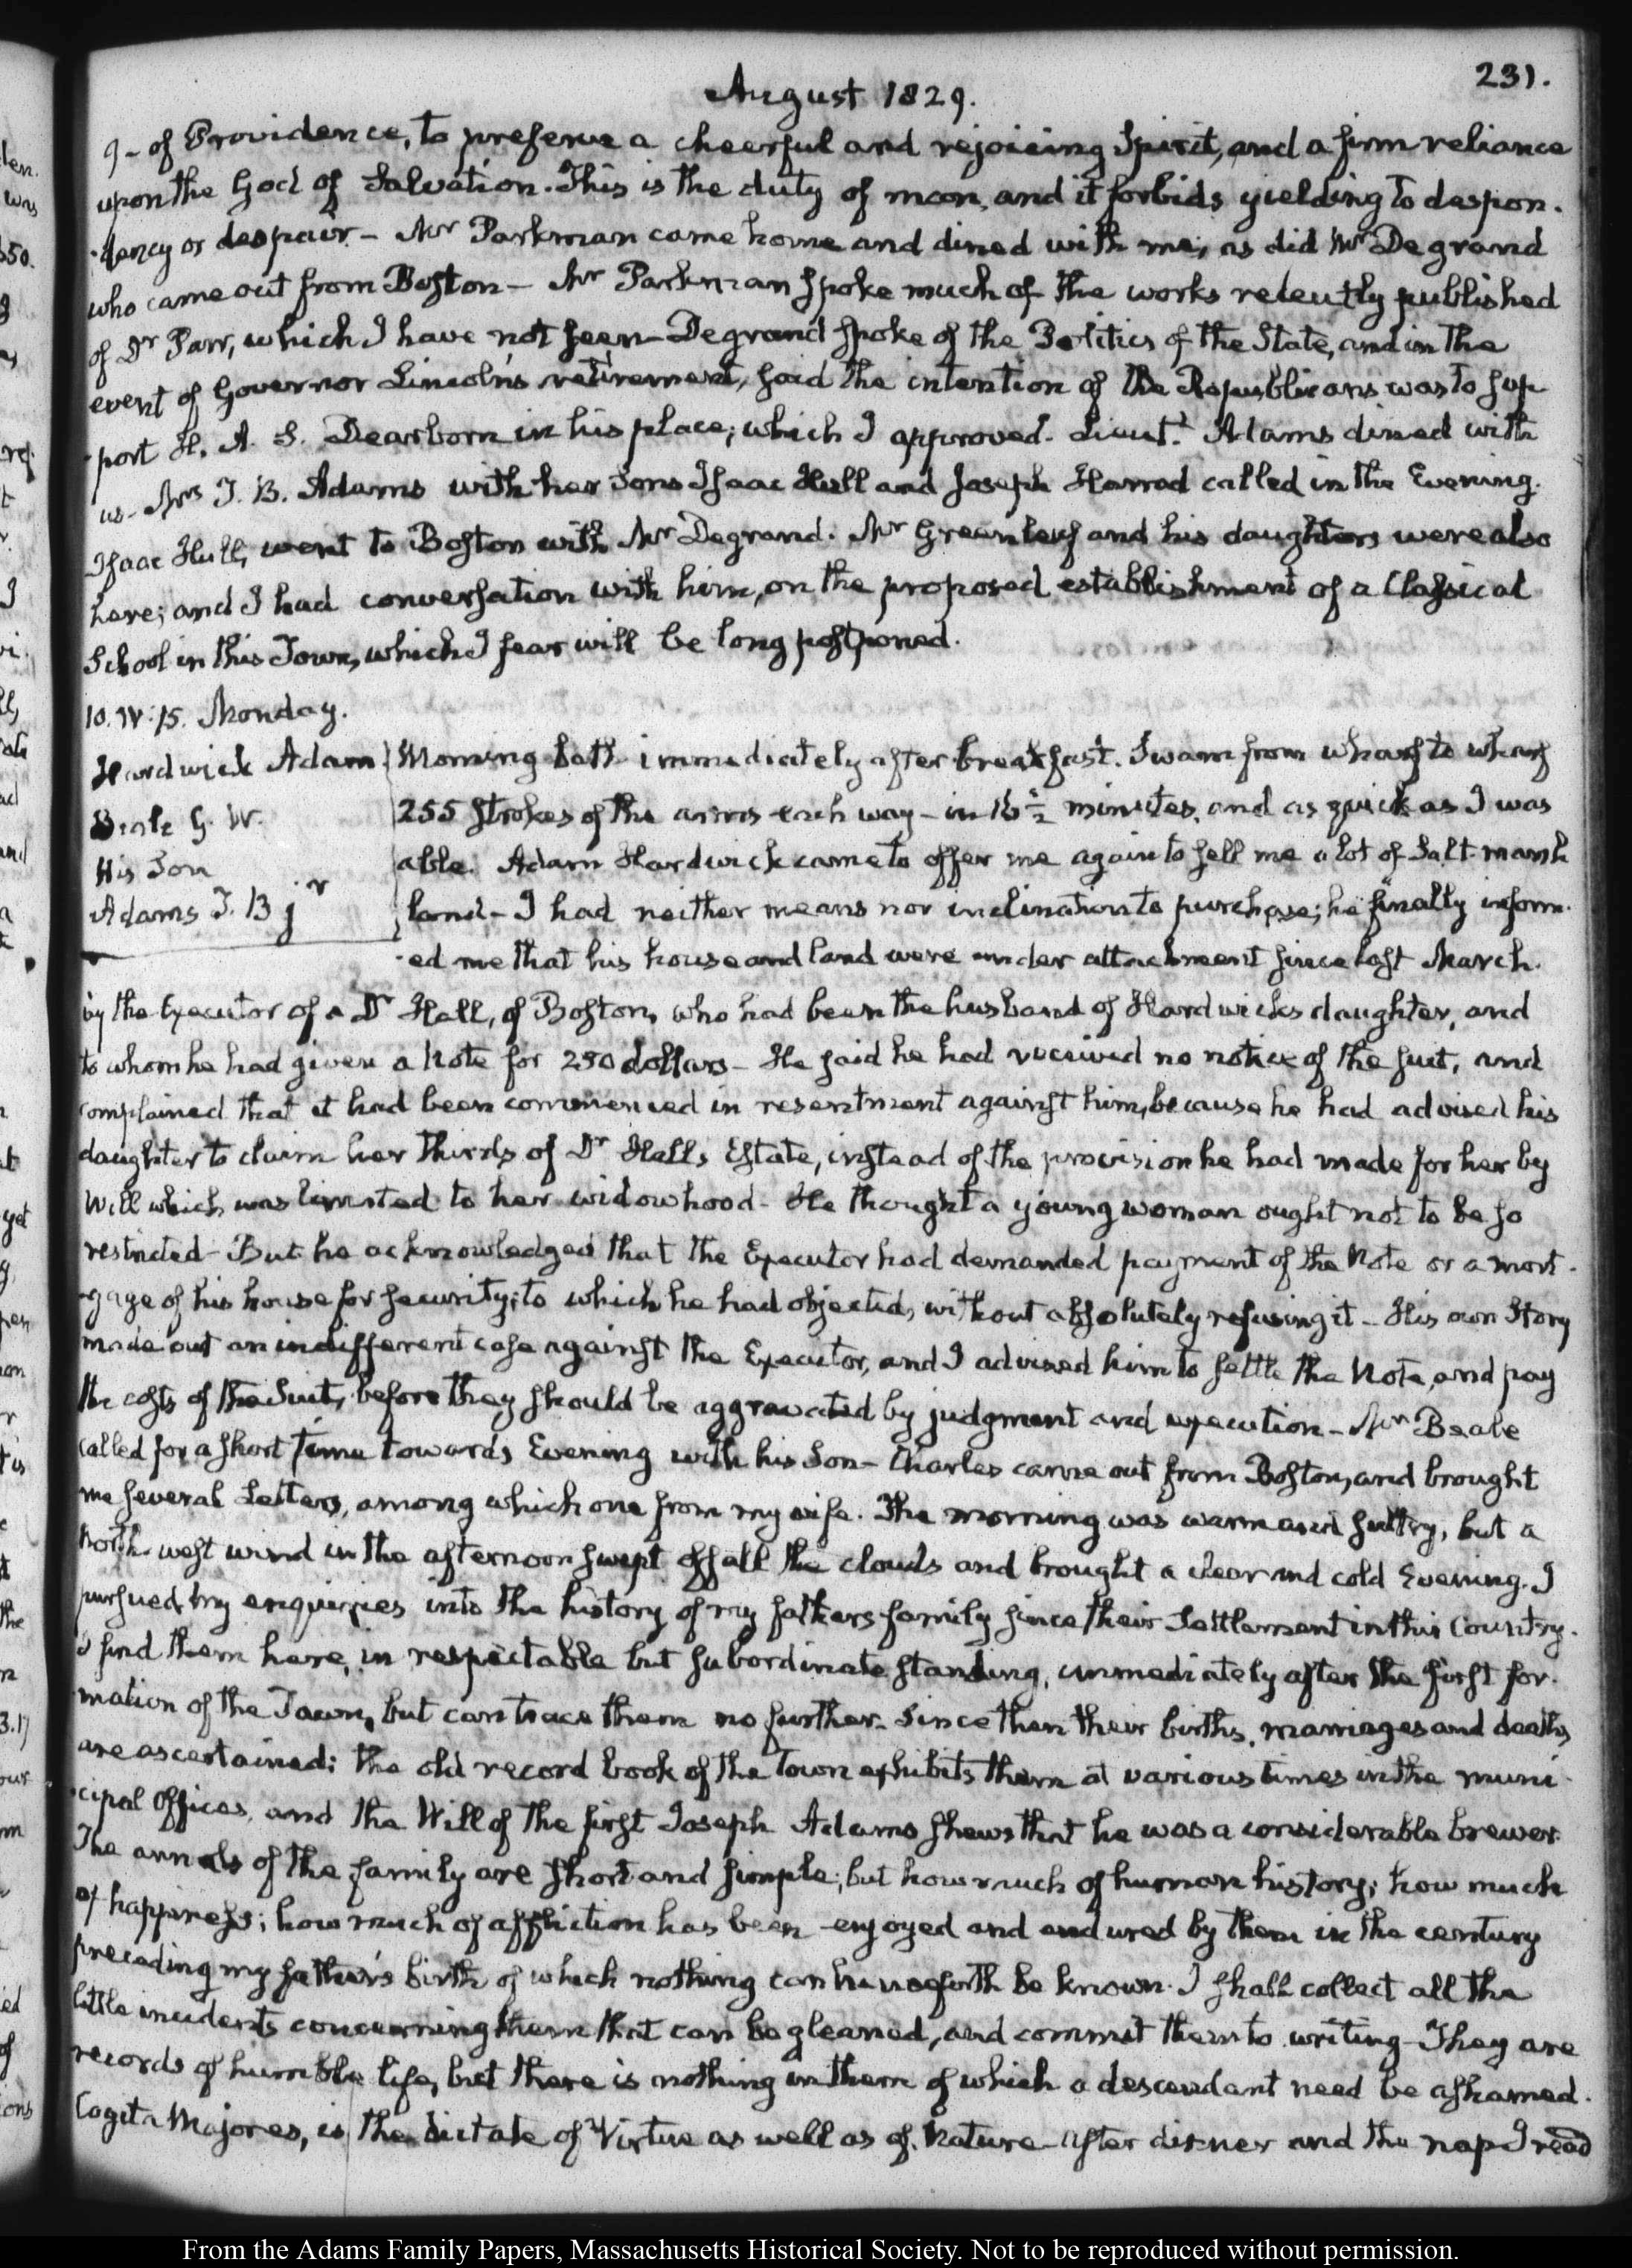 231.
August 1829.
9 - of Providence, to preserve a cheerful and rejoicing Spirit, and a firm reliance
upon the God of Salvation. This is the duty of man, and it forbids yielding to despon-
-dency or despair - Mr Parkman came home and dined with me; as did Mr Degrand
who came out from Boston - Mr Parkman spoke much of the works recently published
of Dr Parr, which I have not seen - Degrand spoke of the Politics of the State, and in the
event of Governor Lincoln's retirement, said the intention of the Republicans was to sup
-port H. A. S. Dearborn in his place; which I approved. Lieutt. Adams dined with
us - Mrs T. B. Adams with her Sons Isaac Hull and Joseph Harrod called in the Evening.
Isaac Hull, went to Boston with Mr Degrand. Mr Greenleaf and his daughters were also
here; and I had conversation with him, on the proposed establishment of a Classical
School in this Town, which I fear will be long postponed.
10. IV:15. Monday.
Hardwick Adam
Beale G. W.
His Son
Adams T. B jr
Morning bath immediately after breakfast. Swam from wharf to wharf
255 strokes of the arms each way - in 16 1/2 minutes, and as quick as I was
able. Adam Hardwick came to offer me again to sell me a lot of Salt-marsh
land - I had neither means nor inclination to purchase; he finally inform-
-ed me that his house and land were under attachment since last March.
by the Executor of a Dr Hall, of Boston, who had been the husband of Hardwicks daughter, and
to whom he had given a Note for 250 dollars - He said he had received no notice of the suit, and
complained that it had been commenced in resentment against him, because he had advised his
daughter to claim her thirds of Dr Hall's Estate, instead of the provision he had made for her by
Will which was limited to her widowhood - He thought a young woman ought not to be so
restricted - But he acknowledged that the Executor had demanded payment of the Note or a mort-
-gage of his house for security; to which he had objected, without absolutely refusing it - His own Story
made out an indifferent case against the Executor, and I advised him to settle the Note, and pay
the costs of the Suit, before they should be aggravated by judgment and execution - Mr Beale
called for a short time towards Evening with his Son - Charles came out from Boston, and brought
me several Letters, among which one from my wife. The morning was warm and sultry, but a
North-west wind in the afternoon swept off all the clouds and brought a clear and cold Evening. I
pursued my enquiries into the history of my fathers family since their Settlement in this Country.
I find them here, in respectable but subordinate standing, immediately after the first for-
mation of the Town, but can trace them no further. Since then their births, marriages and deaths
are ascertained; the old record book of the Town exhibits them at various times in the muni-
-cipal Offices, and the Will of the first Joseph Adams shews that he was a considerable brewer.
The annals of the family are short and simple; but how much of human history; how much
of happiness; how much of affliction has been enjoyed and endured by them in the century
preceding my father's birth of which nothing can henceforth be known. I shall collect all the
little incidents concerning them that can be gleaned, and commit them to writing - They are
records of humble life, but there is nothing in them of which a descendant need be ashamed.
Cogita Majores, is the dictate of Virtue as well as of Nature - After dinner and the nap I read
From the Adams Family Papers, Massachusetts Historical Society. Not to be reproduced without permission.